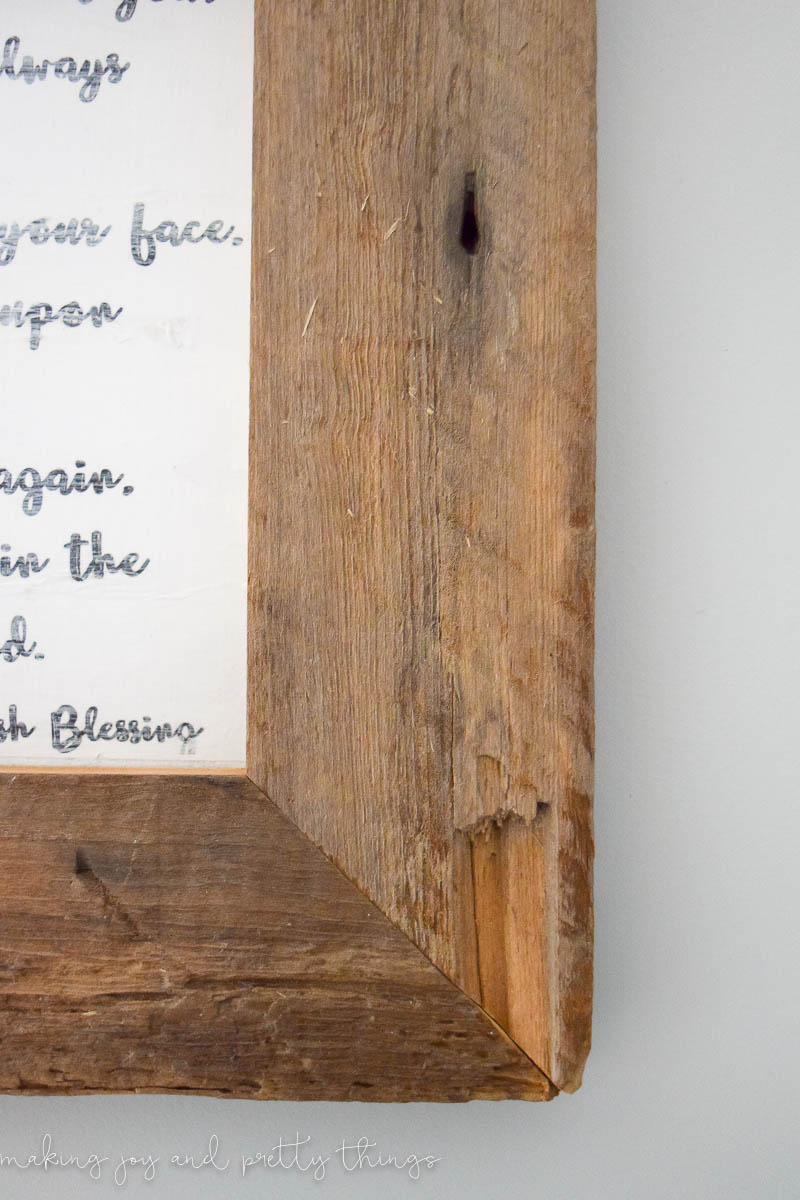 always
your face.
upon
again,
in the
d.
sh Blessing
making joy and pretty things